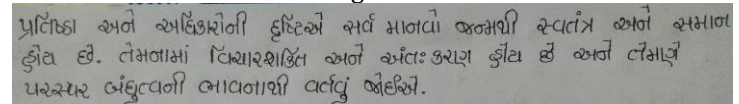 પ્રતિષ્ઠા અને અધિકારોની દૃષ્ટિએ સર્વ માનવો જન્મથી સ્વતંત્ર અને સમાન
હોય છે. તેમનામાં વિચારશક્તિ અને અંતઃકરણ હોય છે અને તેમણે
પરસ્પર બંધુત્વની ભાવનાથી વર્તવું જોઈએ.